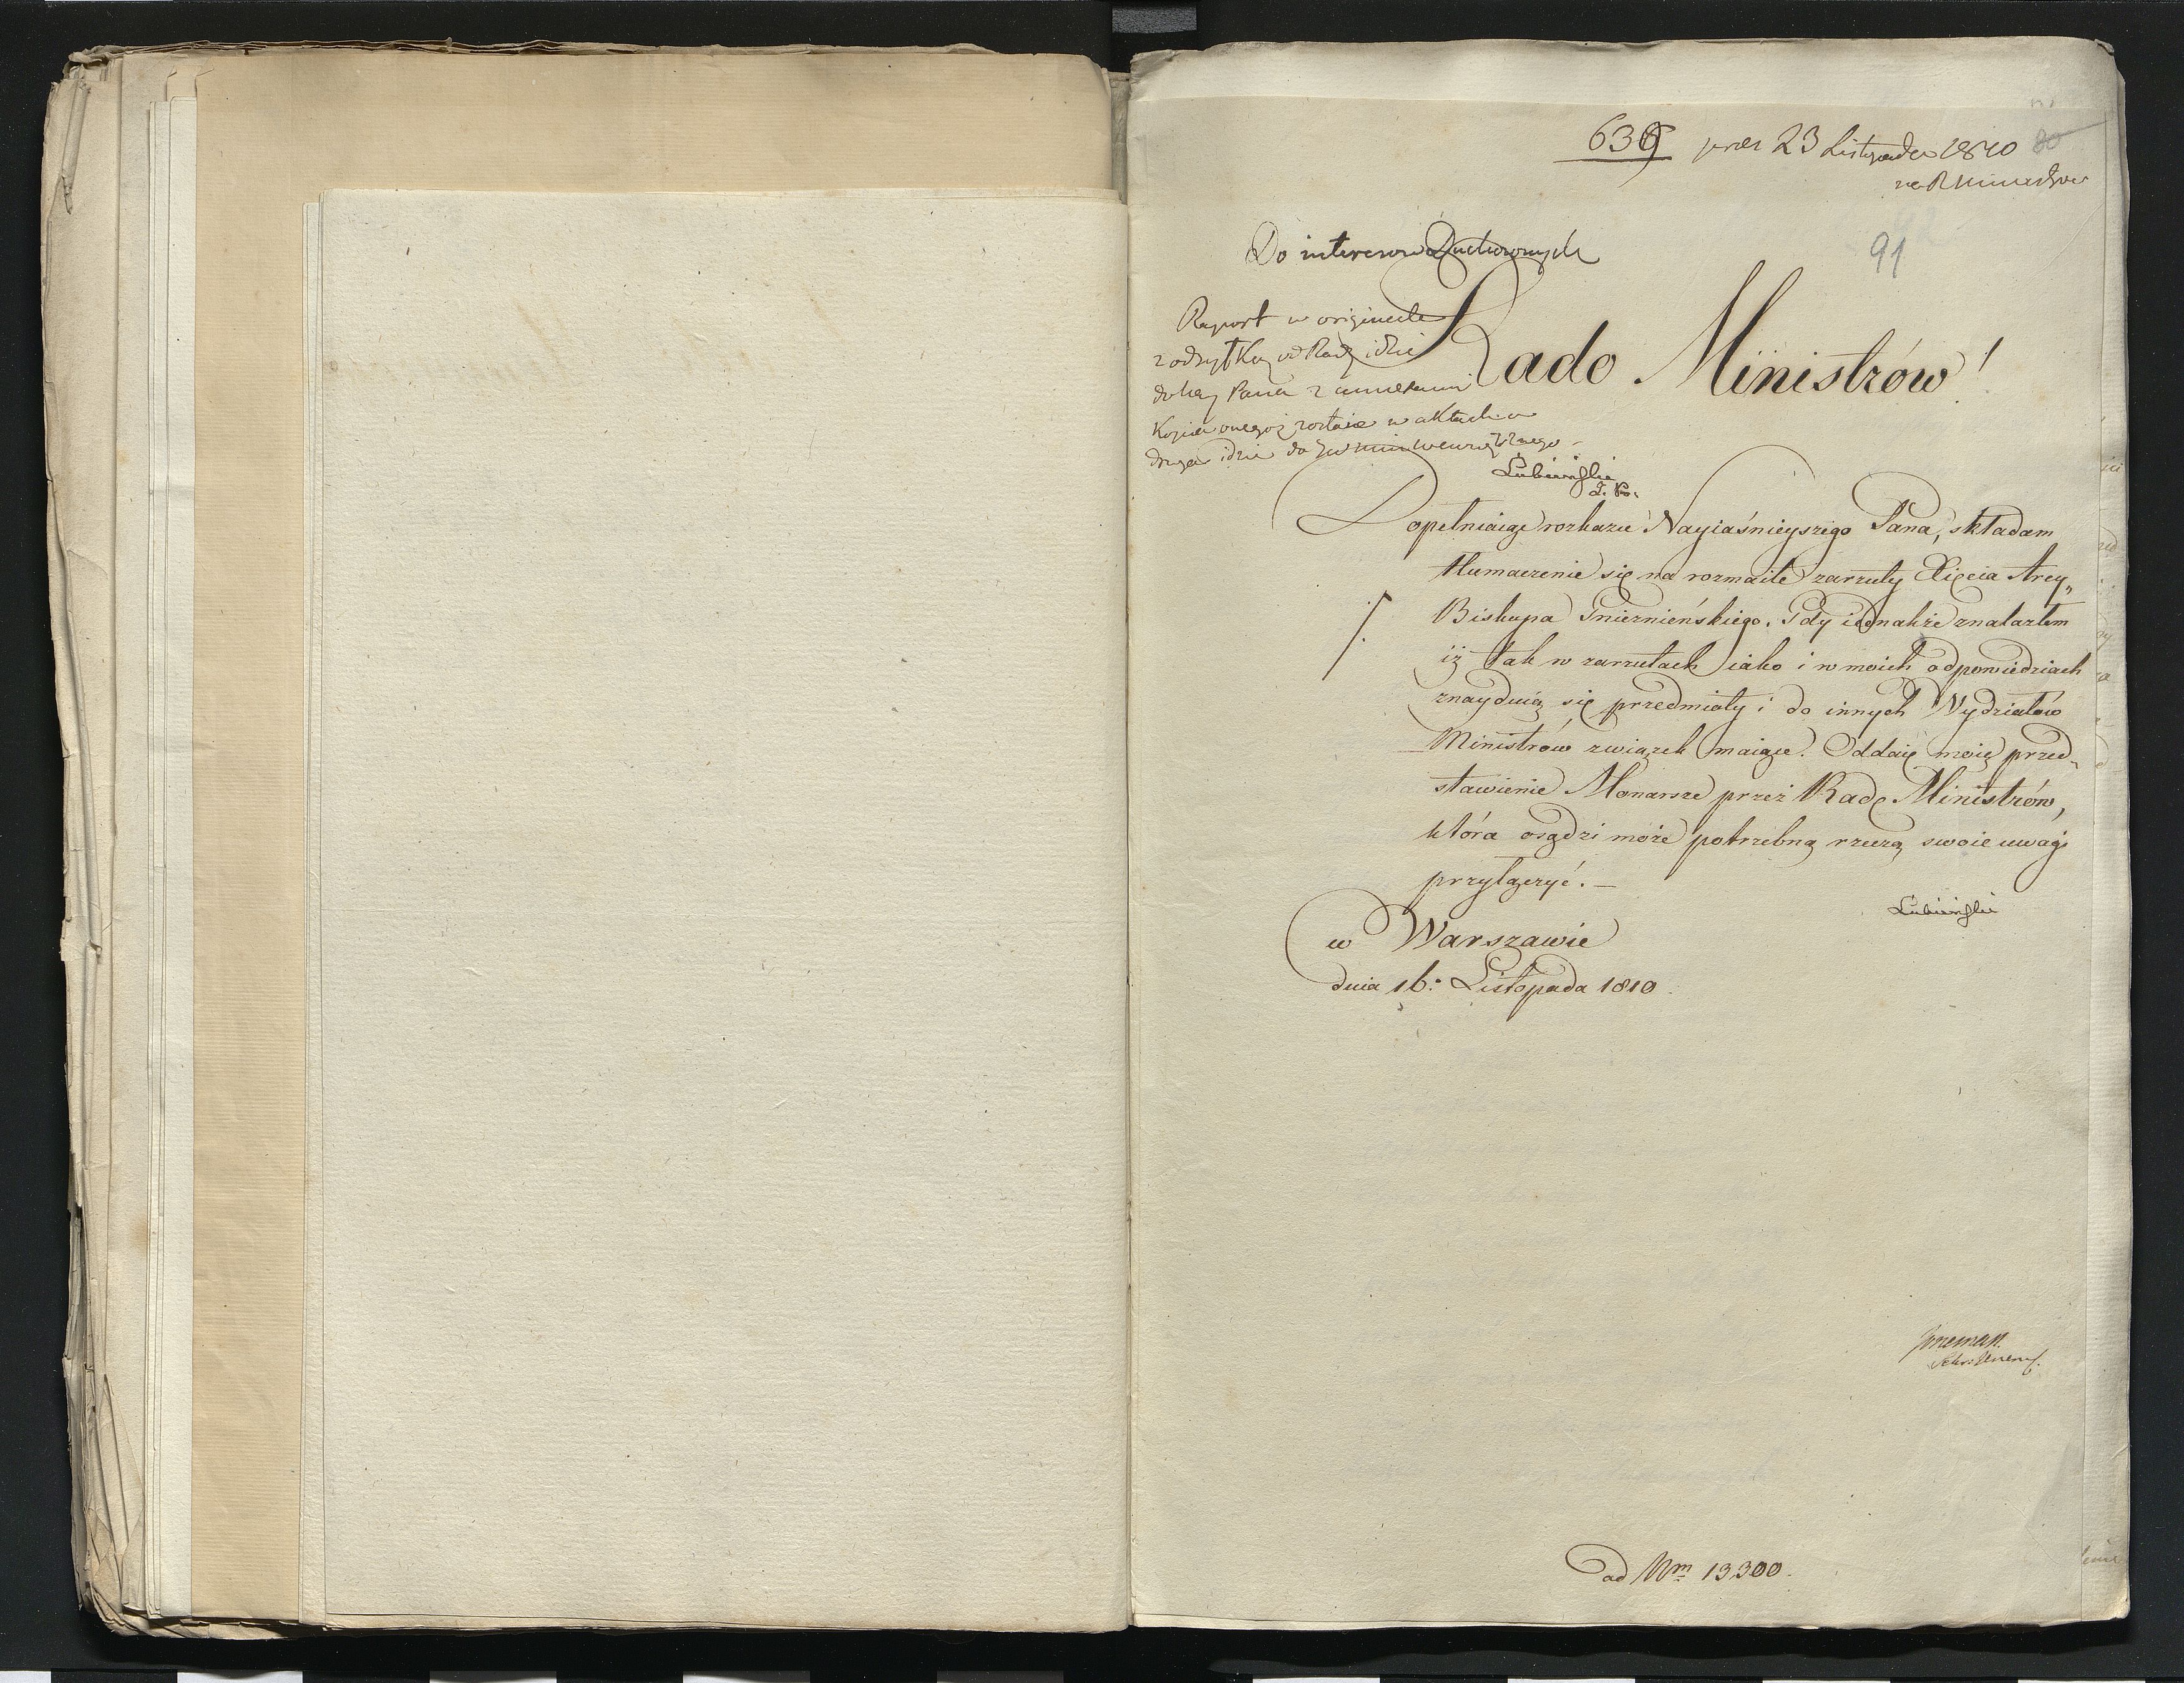 6309 prs 23 Listopada 1810 80
na R Ministrów
91
Do interesow Duchownych
Raport w originale
z odsyłką od Rady idzie
do Nay Pana z annexami
Kopia onegoż zostaie w aktach a
druga idzie do JW Min Wewnętrznego -
Łubieński
Rado Ministrów!
Dopełniaiąc rozkazu Nayiaśnieyszego Pana, składam
tłumaczenie się na rozmaite zarzuty Xięcia Arcy„
Biskupa Gnieznieńskiego. Gdy iednakże znalazłem
iż tak w zarzutach iako i w moich odpowiedziach
znayduią się przedmioty i do innych Wydziałów
Ministrów związek maiące. Oddaię moie przed„
stawienie Monarsze przez Radę Ministrów,
która osądzi może potrzebną rzeczą swoie uwagi
przyłączyć. —
Łubieński
w Warszawie
dnia 16. Listopada 1810.
Sekr: Generl.
ad Nrm 13300.